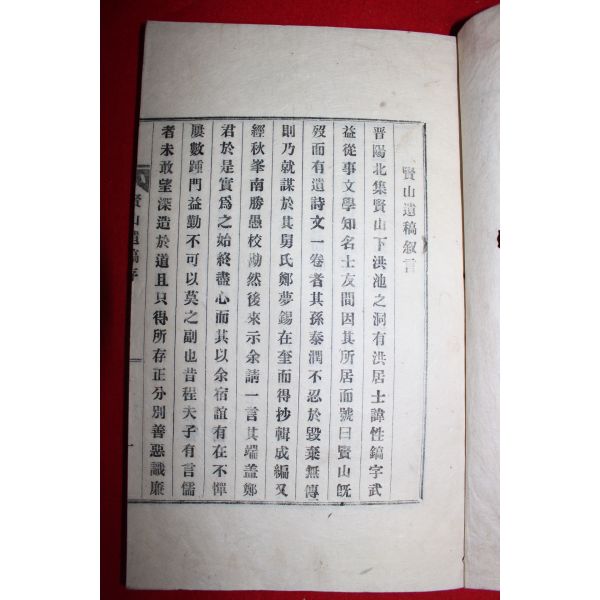 賢山遺稿叙言
晋陽北集賢山下洪池之洞有洪居士諱性鎬字武
益從事文學知名士友間因其所居而號曰賢山旣
歿而有遺詩文一卷者其孫泰潤不忍於毀棄無傳
則乃就謀於其舅氏鄭夢錫在奎而得抄輯成編又
經秋峯南勝愚校勘然後來示余請一言其端盖鄭
君於是實爲之始終盡心而其以余宿誼有在不憚
屢數踵門益勤不可以莫之副也昔程夫子有言儒
者未敢望深造於道且只得所存正分別善惡識廉
賢山遺稿序
一